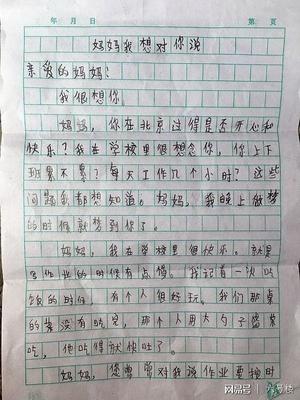 年 月 日 第 页
妈妈我想对你说
亲爱的妈妈：
我很想你。
妈妈，你在北京过得是否开心和
快乐？我在学校里很想念你，你上下
班累不累？每天工作几个小时？这些
问题我都想知道。妈妈，我晚上做梦
的时候就梦到你了。
妈妈，我在学校里很快乐。就是
写作业的时候有点慢。我记着一次吃
饭的时候，有个人很好玩。我们那桌
的菜没有吃完，那个人用大勺子盛菜
吃，他吃得就快吐了。
妈妈，您曾对我说作业要按时